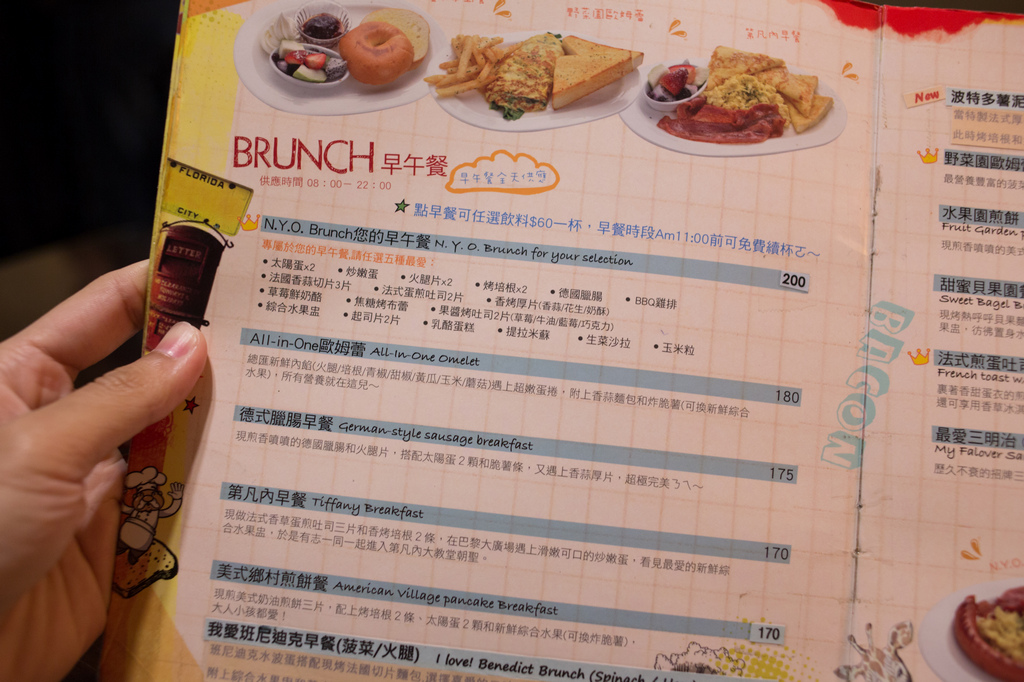 野菜園歐姆蛋
第凡內早餐
BRUNCH 早午餐
早午餐全天供應
供應時間 08:00－22:00
點早餐可任選飲料$60一杯，早餐時段Am11:00前可免費續杯ㄛ～
FLORIDA
CITY
LETTER
N.Y.O. Brunch您的早午餐 N. Y. O. Brunch for your selection
200
專屬於您的早午餐,請任選五種最愛：
• 太陽蛋x2 • 炒嫩蛋 • 火腿片x2 • 烤培根x2 • 德國臘腸 • BBQ雞排
• 法國香蒜切片3片 • 法式蛋煎吐司2片 • 香烤厚片(香蒜/花生/奶酥)
• 草莓鮮奶酪 • 焦糖烤布蕾 • 果醬烤吐司2片(草莓/牛油/藍莓/巧克力)
• 綜合水果盅 • 起司片2片 • 乳酪蛋糕 • 提拉米蘇 • 生菜沙拉 • 玉米粒
All-in-One歐姆蕾 All-In-One Omelet
180
總匯新鮮內餡(火腿/培根/青椒/甜椒/黃瓜/玉米/蘑菇)遇上超嫩蛋捲，附上香蒜麵包和炸脆薯(可換新鮮綜合
水果)，所有營養就在這兒～
德式臘腸早餐 German-style sausage breakfast
175
現煎香噴噴的德國臘腸和火腿片，搭配太陽蛋２顆和脆薯條，又遇上香蒜厚片，超極完美ㄋㄟ～
第凡內早餐 Tiffany Breakfast
170
現做法式香草蛋煎吐司三片和香烤培根２條，在巴黎大廣場遇上滑嫩可口的炒嫩蛋，看見最愛的新鮮綜
合水果盅，於是有志一同一起進入第凡內大教堂朝聖。
美式鄉村煎餅餐 American Village pancake Breakfast
170
現煎美式奶油煎餅三片，配上烤培根２條，太陽蛋２顆和新鮮綜合水果(可換炸脆薯)，
大人小孩都愛！
我愛班尼迪克早餐(菠菜/火腿) I love! Benedict Brunch (Spinach /
班尼迪克水波蛋搭配現烤法國切片麵包
附上綜合水果
BACON
New
波特多薯泥
當特製法式厚
此時烤培根和
野菜園歐姆
最營養豐富的菠菜
水果園煎餅
Fruit Garden
現煎香噴噴的美式
甜蜜貝果園
Sweet Bagel B
現烤熱呼呼貝果
果盅，彷彿置身
法式煎蛋吐司
French toast w
裹著香甜蛋衣的
還可享用香草冰淇
最愛三明治
My Falover Sa
歷久不衰的招牌三
N.Y.O.